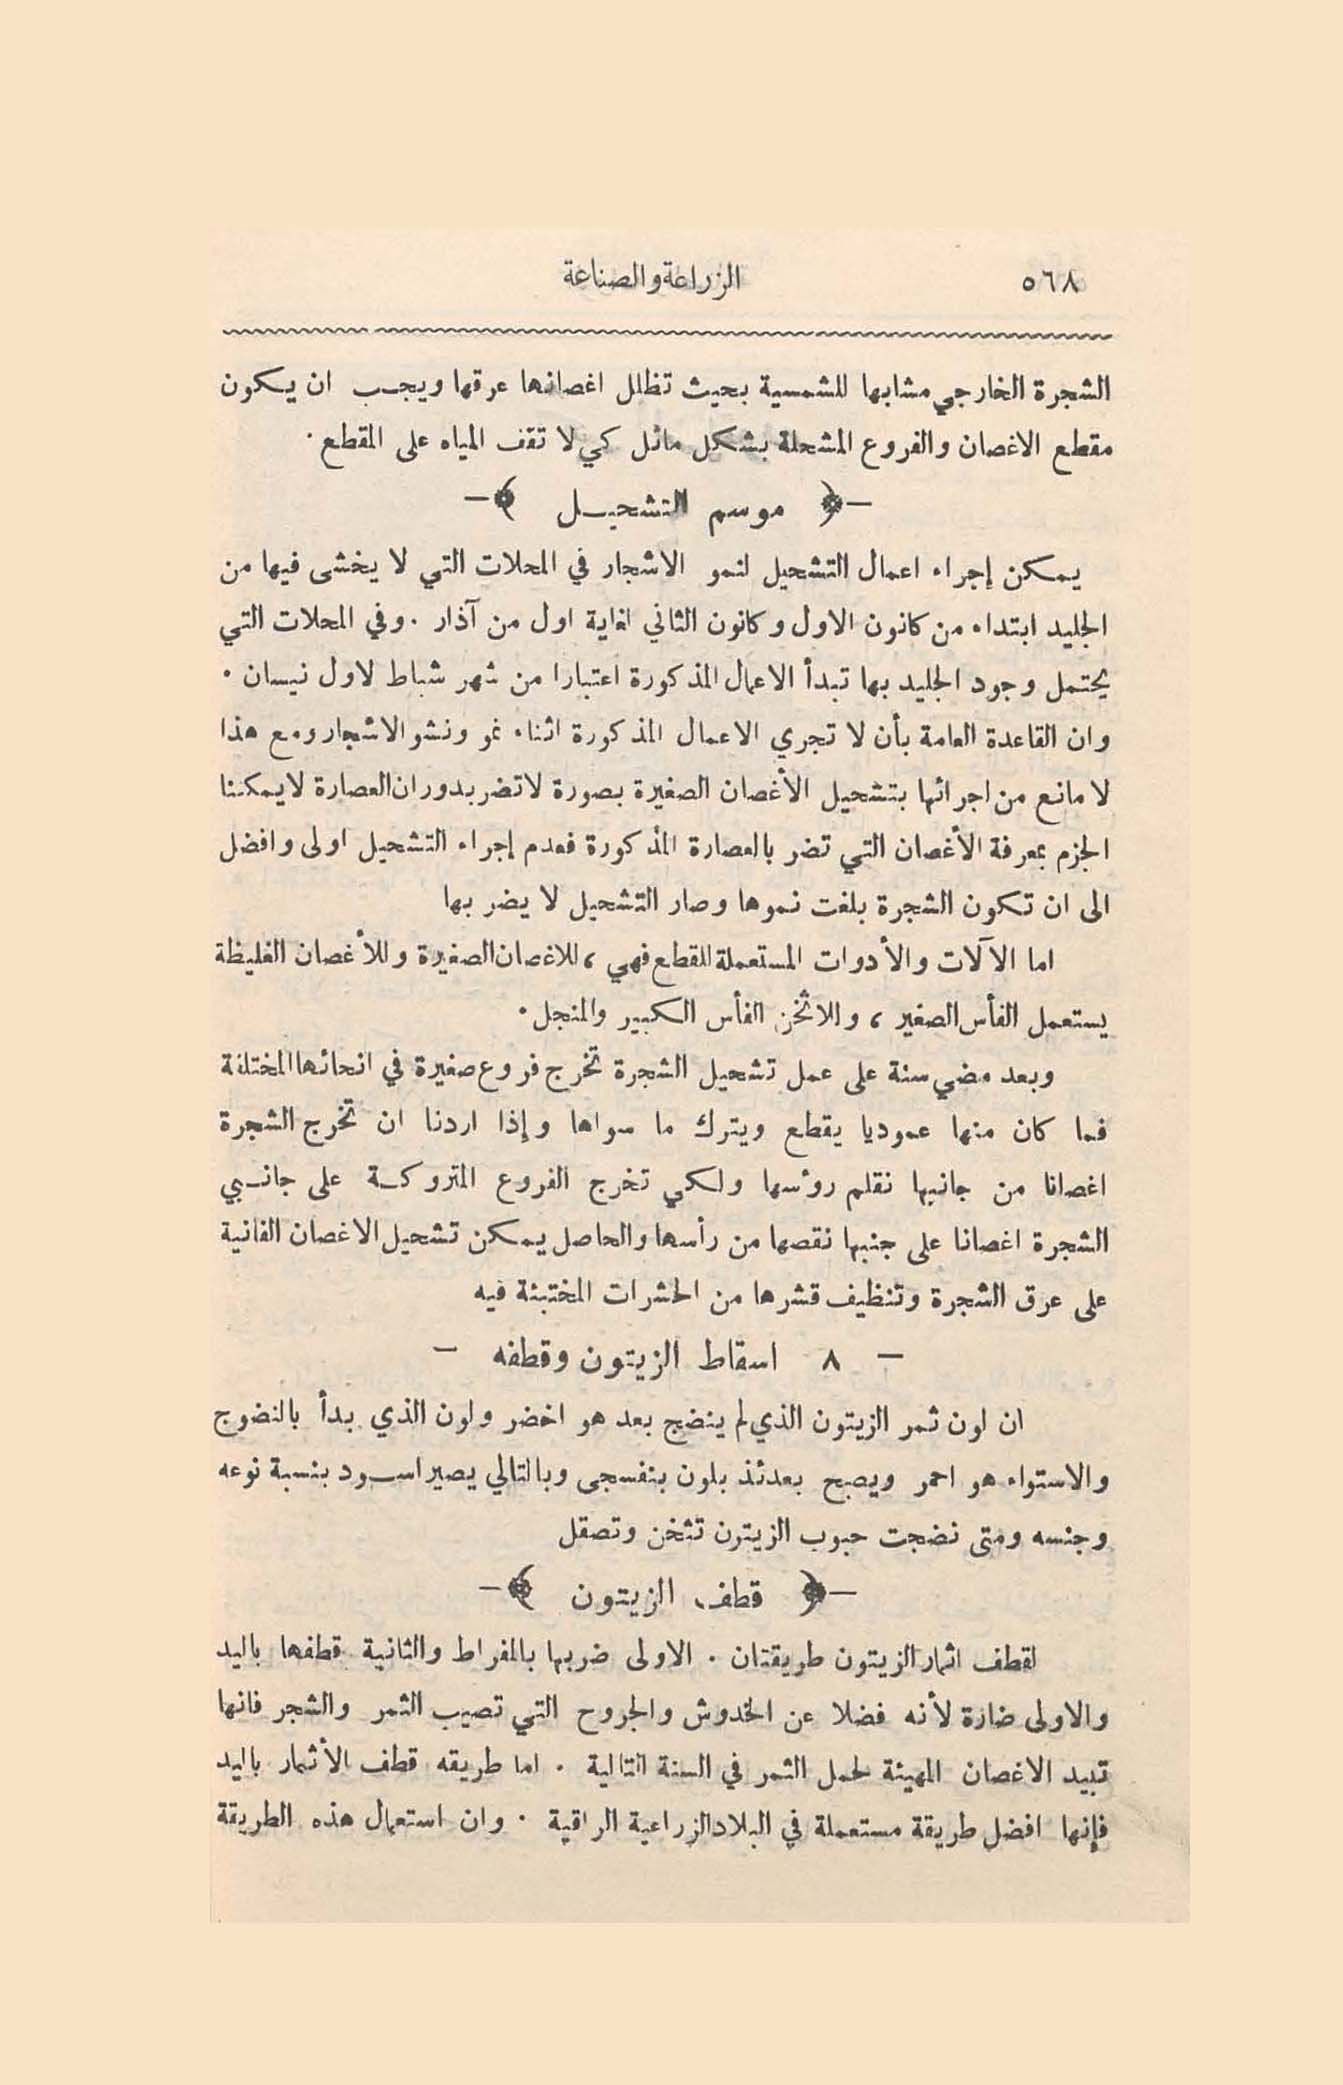 ٥٦٨
الزراعة والصناعة
الشجرة الخارجي مشابها للشمسية بحيث تظلل اغصانها عرقها ويجب ان يكون
مقطع الاغصان والفروع المشحلة بشكل مائل كي لا تقف المياه على المقطع ·
–﴿ موسم التشحيل ﴾–
يمكن إجراء اعمال التشحيل لنمو الاشجار في المحلات التي لا يخشى فيها من
الجليد ابتداء من كانون الاول وكانون الثاني لغاية اول من آذار · وفي المحلات التي
يحتمل وجود الجليد بها تبدأ الاعمال المذكورة اعتبارا من شهر شباط لاول نيسان ·
وان القاعدة العامة بأن لا تجري الاعمال المذكورة اثناء نمو ونشو الاشجار ومع هذا
لا مانع من اجرائها بتشحيل الأغصان الصغيرة بصورة لا تضر بدوران العصارة لا يمكننا
الجزم بمعرفة الأغصان التي تضر بالعصارة المذكورة فعدم إجراء التشحيل اولى وافضل
الى ان تكون الشجرة بلغت نموها وصار التشحيل لا يضر بها
اما الآلات والأدوات المستعملة للقطع فهي ، للاغصان الصغيرة وللأغصان الغليظة
يستعمل الفأس الصغير ، والاثخن الفأس الكبير والمنجل ·
وبعد مضي سنة على عمل تشحيل الشجرة تخرج فروع صغيرة في انحائها المختلفة
فما كان منها عموديا يقطع ويترك ما سواها وإذا اردنا ان تخرج الشجرة
اغصانا من جانبها نقلم رؤسها ولكي تخرج الفروع المتروكة على جانبي
الشجرة اغصانا على جنبها نقصها من رأسها والحاصل يمكن تشحيل الاغصان الفانية
على عرق الشجرة وتنظيف قشرها من الحشرات المختبئة فيه
– ٨ اسقاط الزيتون وقطفه –
ان لون ثمر الزيتون الذي لم ينضج بعد هو اخضر ولون الذي بدأ بالنضوج
والاستواء هو احمر ويصبح بعدئذ بلون بنفسجى وبالتالي يصير اسود بنسبة نوعه
وجنسه ومتى نضجت حبوب الزيتون تثخن وتصقل
–﴿ قطف الزيتون ﴾–
لقطف اثمار الزيتون طريقتان · الاولى ضربها بالمفراط والثانية قطفها باليد
والاولى ضارة لأنه فضلا عن الخدوش والجروح التي تصيب الثمر والشجر فانها
تبيد الاغصان المهيئة لحمل الثمر في السنة التالية · اما طريقه قطف الأثمار باليد
فإنها افضل طريقة مستعملة في البلاد الزراعية الراقية · وان استعمال هذه الطريقة